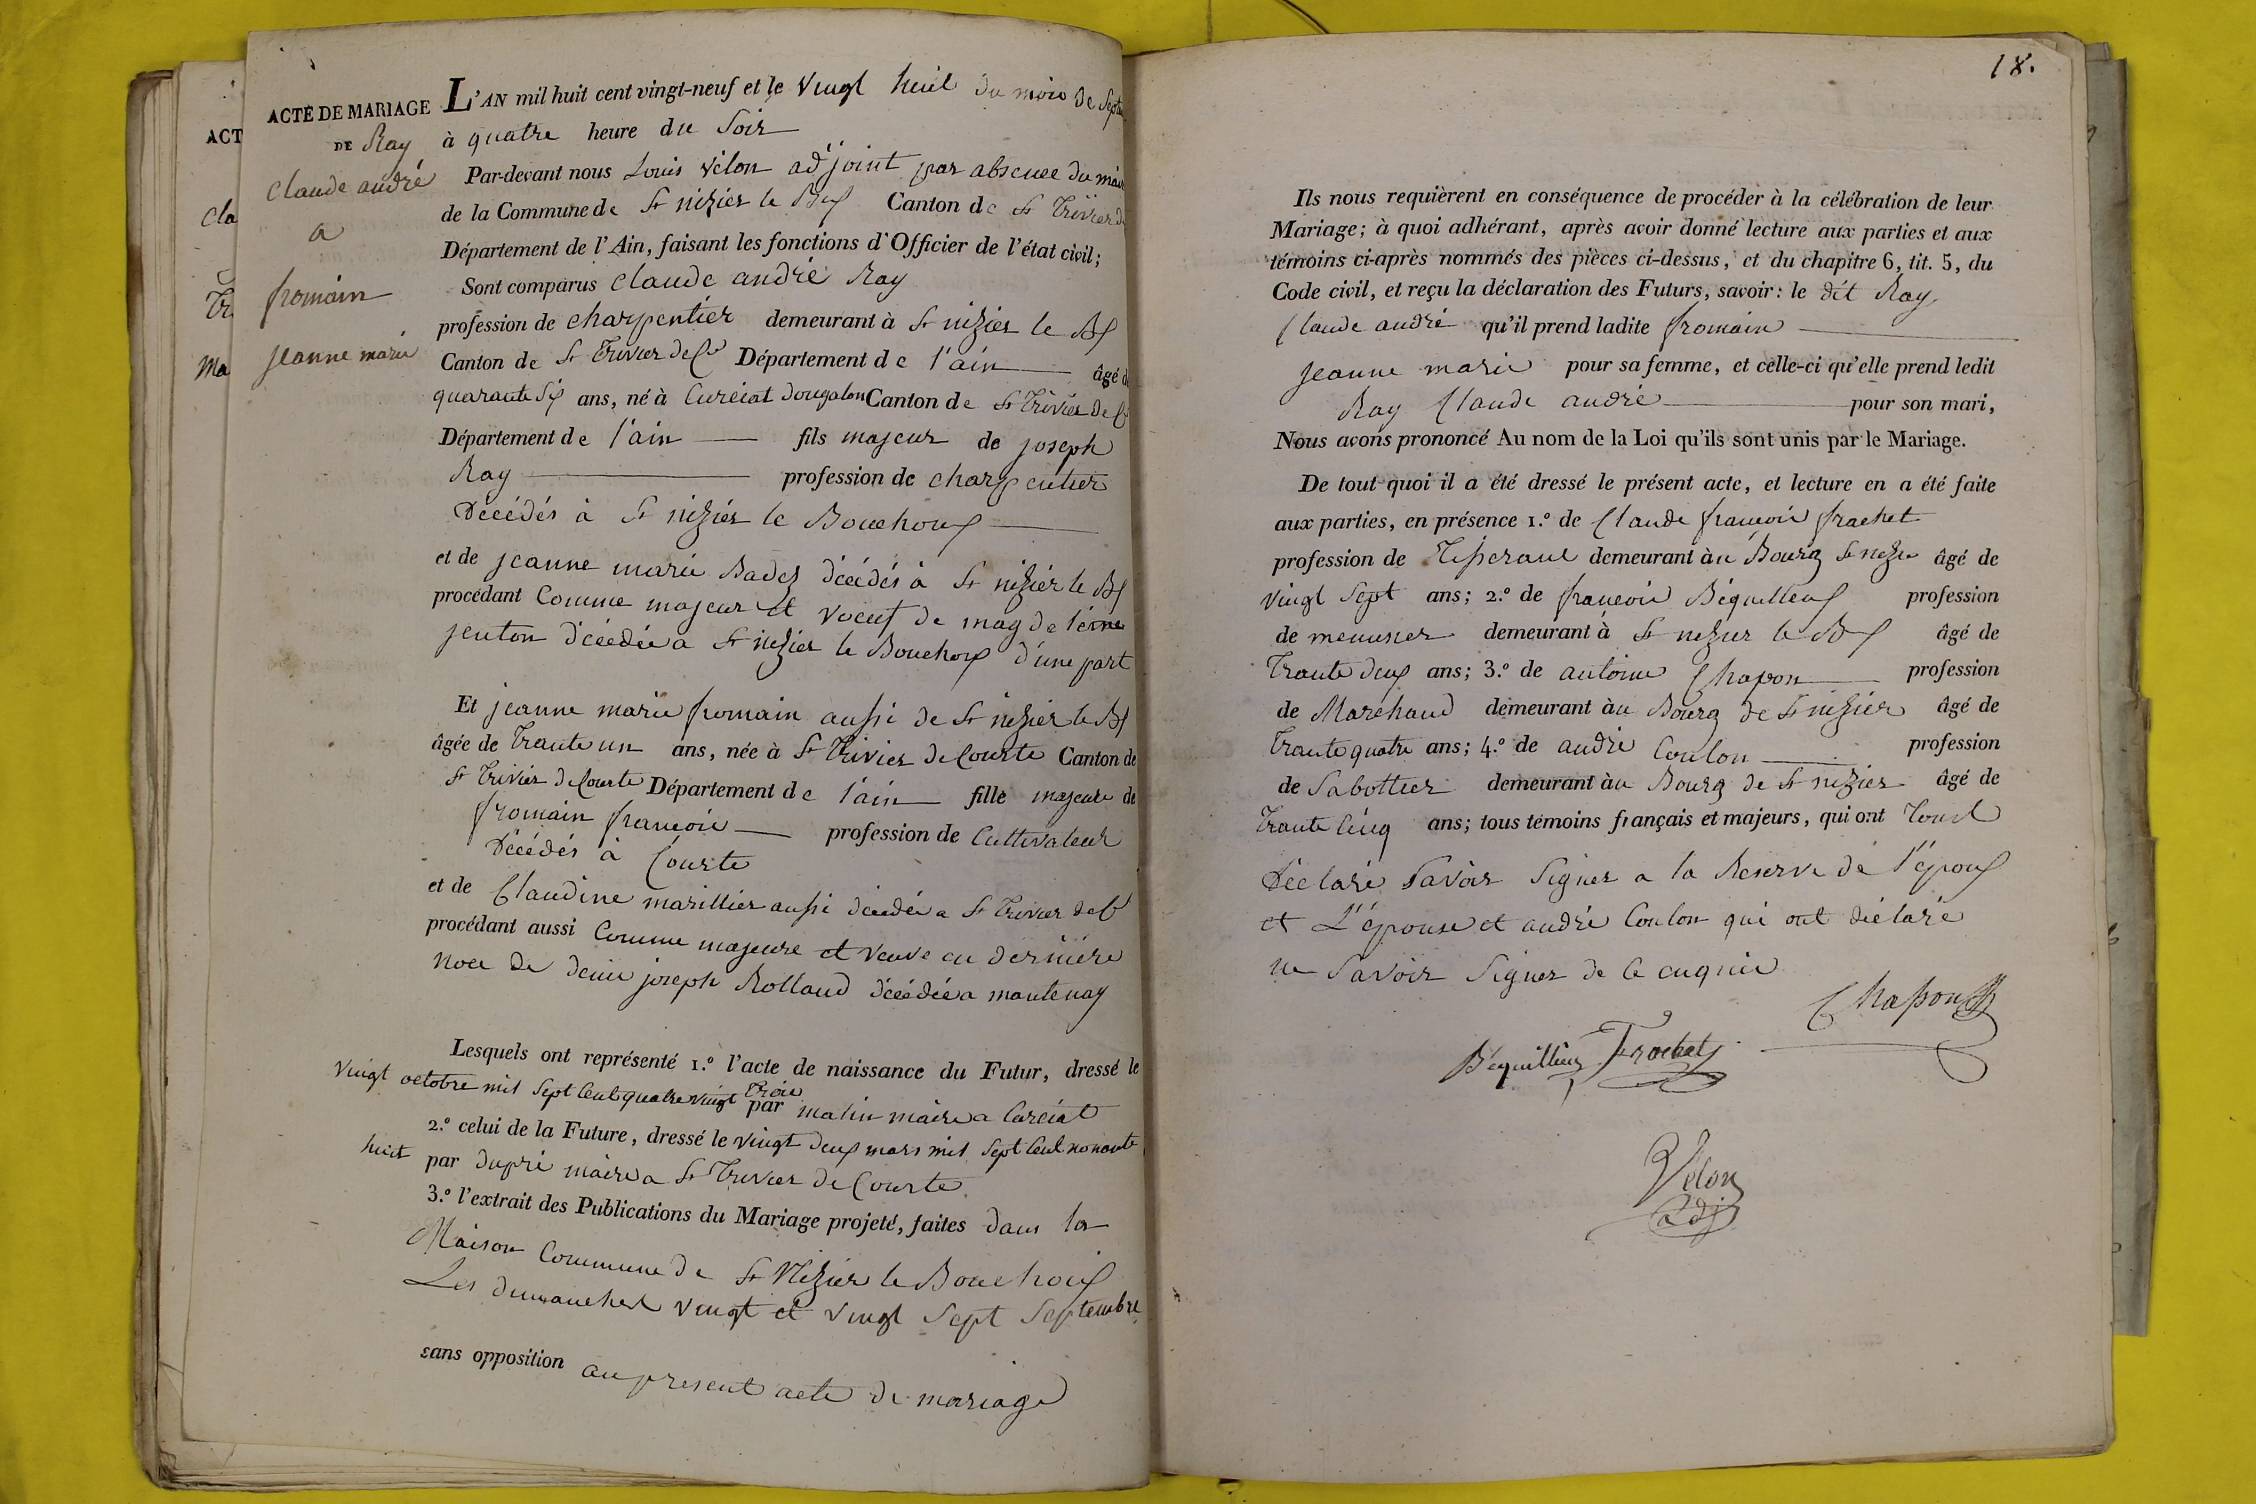 ACT
cla
Tr
Ma
ACTE DE MARIAGE
DE Ray
claude andré
a
fromain
jeanne marie
L'AN mil huit cent vingt-neuf et le vingt huit du mois de Septem
à quatre heure du Soir
Par-devant nous Louis vélon adjoint par absence du mair
de la Commune de St nizier le Bx Canton de St Trivier de
Département de l'Ain, faisant les fonctions d'Officier de l'état civil;
Sont comparus claude andré Ray
profession de charpentier demeurant à St nizier le Bx
Canton de St Trivier de Cte Département de l'ain âgé de
quarante Six ans, né à Curciat dongalon Canton de St Trivier de Cte
Département de l'ain fils majeur de joseph
Ray profession de charpentier
Décédés à St nizier le Bouchoux
et de jeanne marie Badez décédés à St nizier le Bx
procédant Comme majeur et voeuf de magdeleine
jenton décédée a St nizier le Bouchoux d'une part
Et jeanne marie fromain aussi de St nizier le Bx
âgée de Trante un ans, née à St Trivier de Courte Canton de
St Trivier de Courte Département de l'ain fille majeure de
fromain francois profession de Cultivateur
Décédés à Courte
et de Claudine marillier aussi décédée a St Trivier de Cte
procédant aussi Comme majeure et veuve en dernière
noce de denis joseph Rolland décédée a mantenay
Lesquels ont représenté 1.º l'acte de naissance du Futur, dressé le
vingt octobre mil Sept Cent quatre vingt Trois par matin maire a Curciat
2.º celui de la Future, dressé le vingt deux mars mil Sept Cent nonante
huit par dupré maire a St Trivier de Courte
3.º l'extrait des Publications du Mariage projeté, faites dans la
Maison Commune de St Nizier le Bouchoux
Les dimanches vingt et vingt Sept Septembre
sans opposition au present acte de mariage
18.
Ils nous requièrent en conséquence de procéder à la célébration de leur
Mariage; à quoi adhérant, après avoir donné lecture aux parties et aux
témoins ci-après nommés des pièces ci-dessus, et du chapitre 6, tit. 5, du
Code civil, et reçu la déclaration des Futurs, savoir: le dit Ray
Claude andré qu'il prend ladite fromain
jeanne marie pour sa femme, et celle-ci qu'elle prend ledit
Ray Claude andré pour son mari,
Nous avons prononcé Au nom de la Loi qu'ils sont unis par le Mariage.
De tout quoi il a été dressé le présent acte, et lecture en a été faite
aux parties, en présence 1.º de Claude francois frachet
profession de Tisserant demeurant à u Bourg St nizier âgé de
vingt Sept ans; 2.º de francois Béquilleux profession
de menusier demeurant à St nizier le Bx âgé de
Trante deux ans; 3.º de antoine Chapon profession
de Marchand demeurant à u Bourg de St nizier âgé de
Trante quatre ans; 4.º de andré Coulon profession
de Sabottier demeurant à u Bourg de St nizier âgé de
Trante Cinq ans; tous témoins français et majeurs, qui ont tous
Déclaré Savoir Signer a la Reserve de l'époux
et L'épouse et andré Coulon qui ont déclaré
ne Savoir Signer de ce enquis
Chapon
Béquilleux Frachet
Vélon
adj